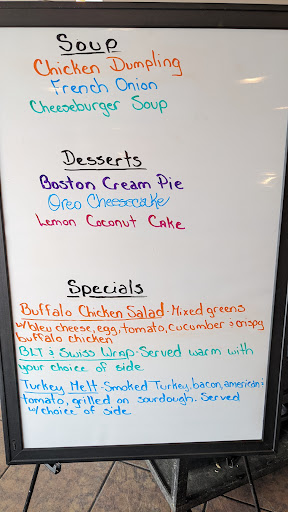 Soup
Chicken Dumpling
French Onion
Cheeseburger Soup
Desserts
Boston Cream Pie
Oreo Cheesecake
Lemon Coconut Cake
Specials
Buffalo Chicken Salad - Mixed greens
w/bleu cheese, egg, tomato, cucumber & crispy
buffalo chicken
BLT & Swiss Wrap - Served warm with
your choice of side
Turkey Melt - Smoked Turkey, bacon, american &
tomato, grilled on sourdough. Served
w/choice of side